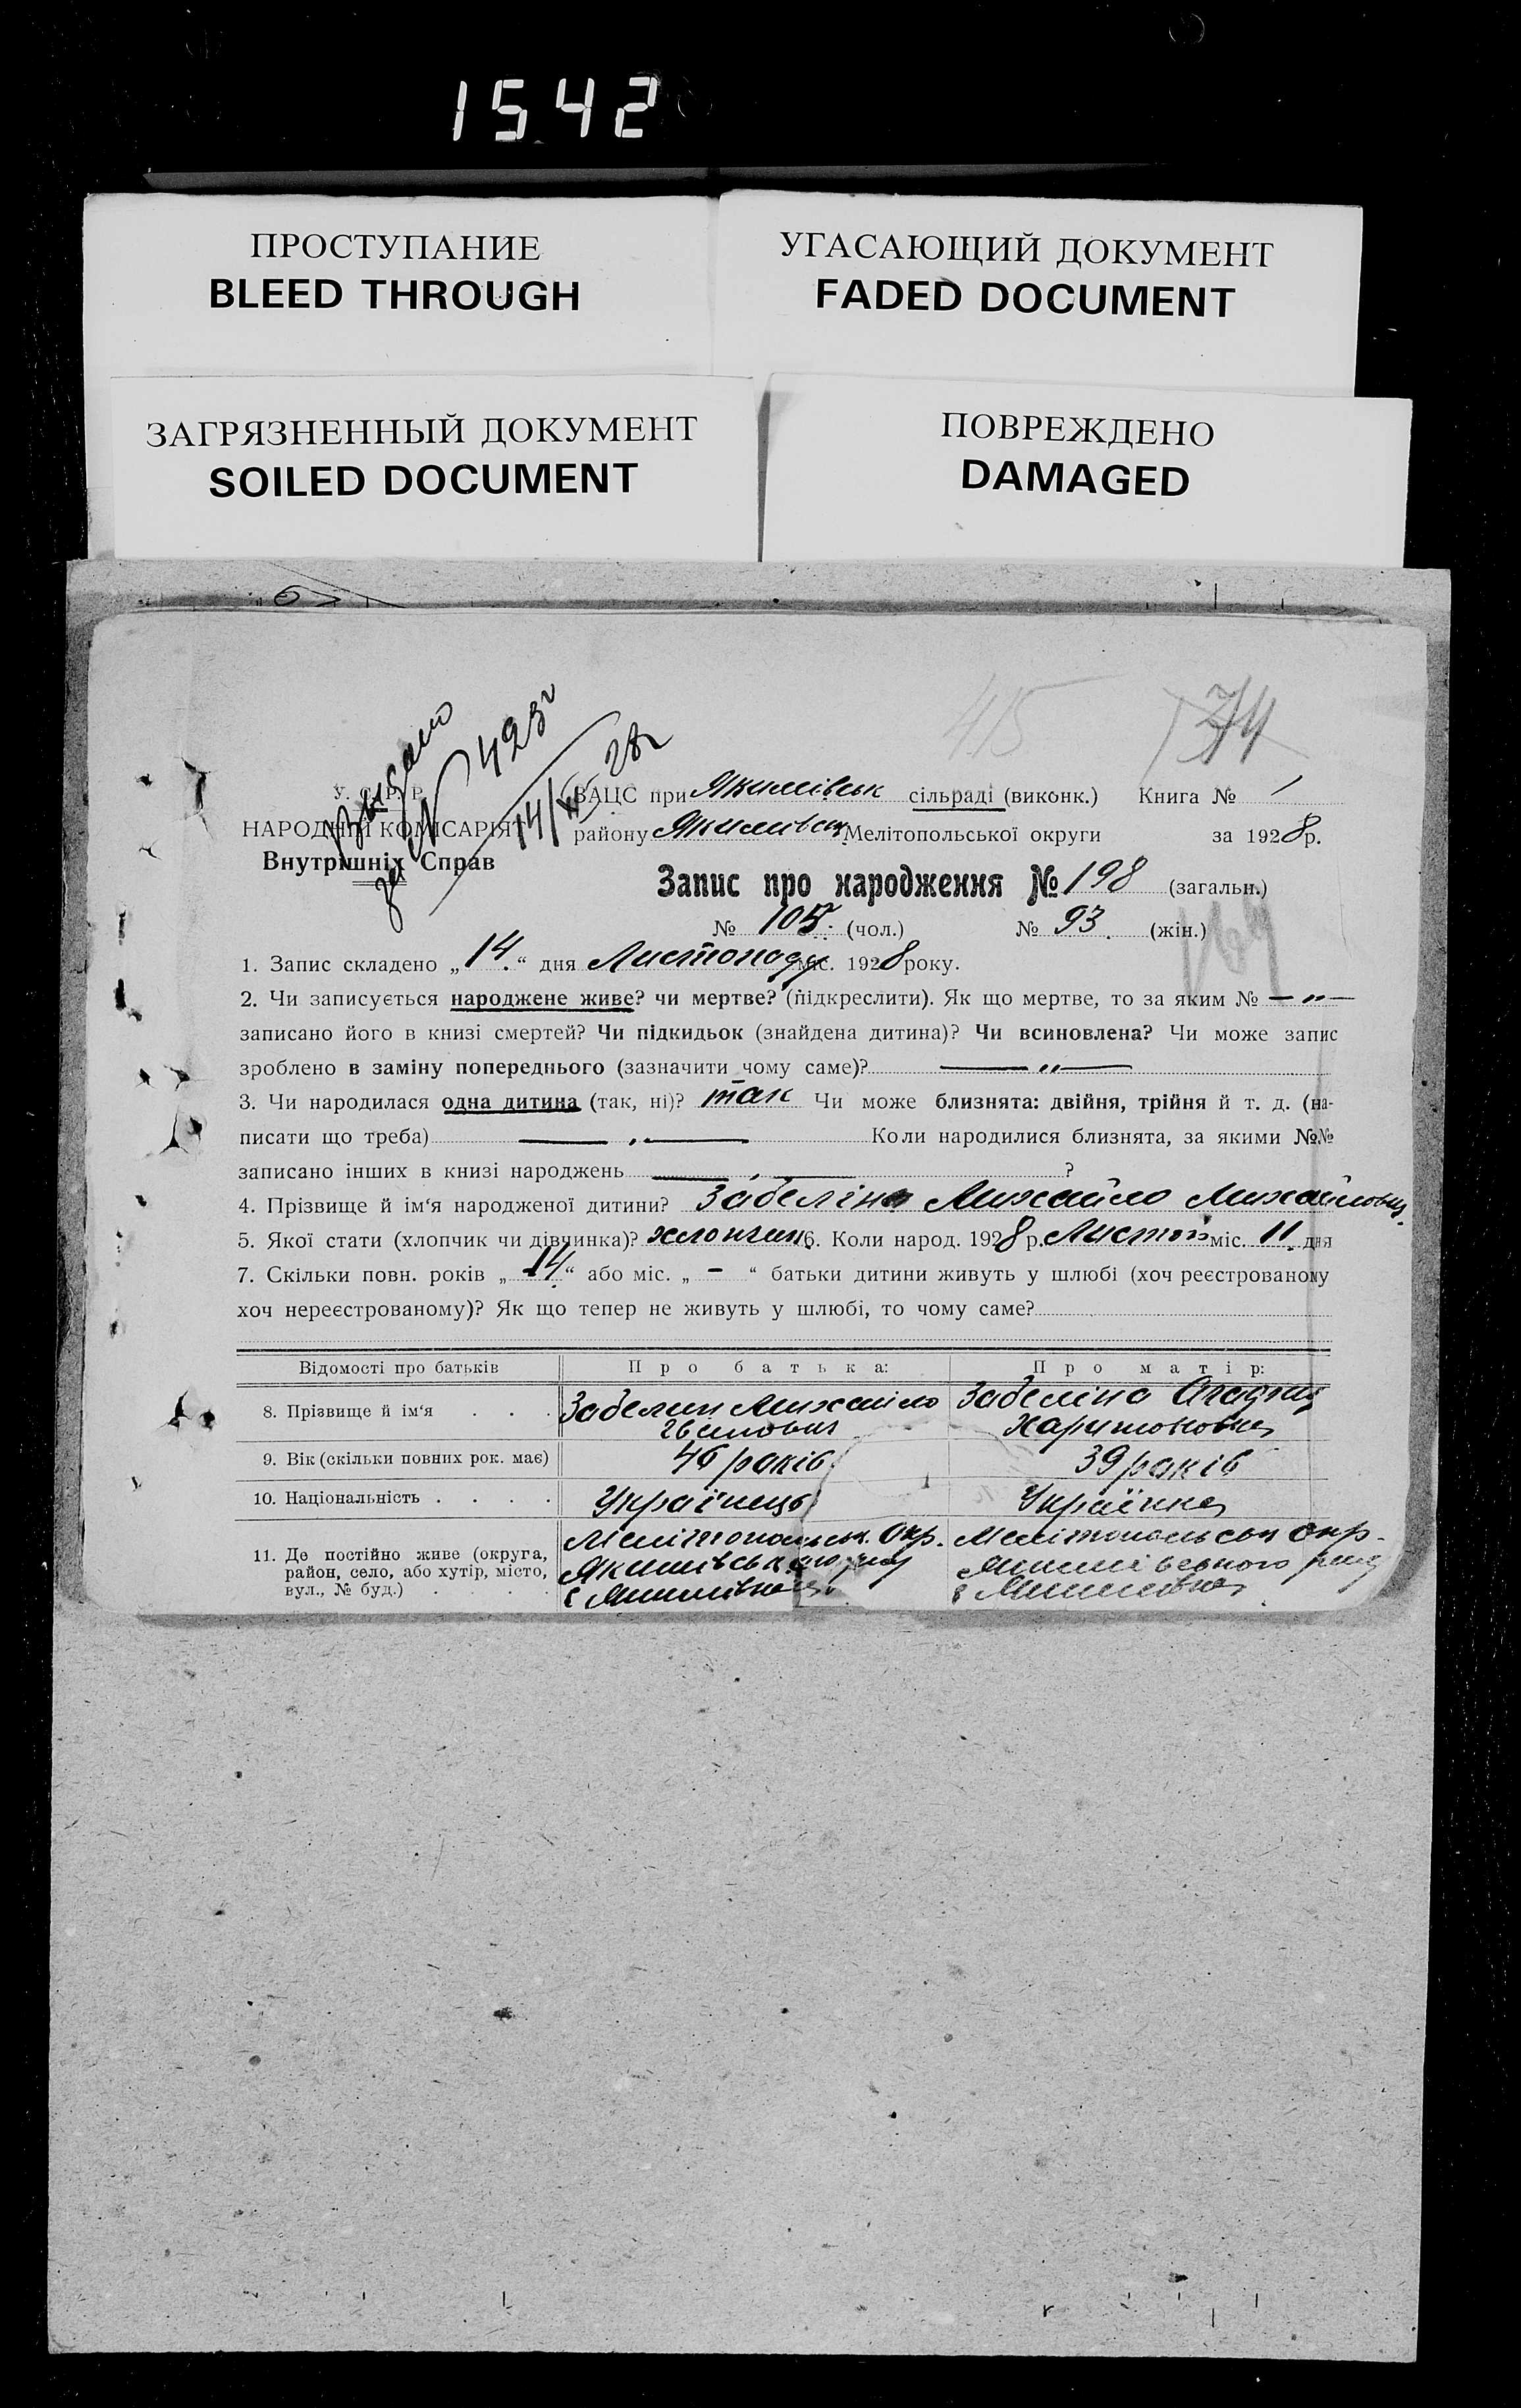 1542
ПРОСТУПАНИЕ
BLEED THROUGH
УГАСАЮЩИЙ ДОКУМЕНТ
FADED DOCUMENT
ЗАГРЯЗНЕННЫЙ ДОКУМЕНТ
SOILED DOCUMENT
ПОВРЕЖДЕНО
DAMAGED
415
Выдано
за № 423
14/XI 28г
У. С. Р. Р.
НАРОДНІЙ КОМІСАРІЯТ
Внутрішніх Справ
ЗАЦС при Якимівськ сільраді (виконк.) Книга № 1
району Якимівськ Мелітопольської округи за 1928 р.
Запис про народження № 198 (загальн.)
№ 105. (чол.) № 93. (жін.)
1. Запис складено „14.“ дня Листопаду міс. 1928 року.
2. Чи записується народжене живе? чи мертве? (підкреслити). Як що мертве, то за яким № — „ —
записано його в книзі смертей? Чи підкидьок (знайдена дитина)? Чи всиновлена? Чи може запис
зроблено в заміну попереднього (зазначити чому саме)? — „ —
3. Чи народилася одна дитина (так, ні)? так Чи може близнята: двійня, трійня й т. д. (на-
писати що треба) — „ — Коли народилися близнята, за якими №№
записано інших в книзі народжень — „ — ?
4. Прізвище й ім‘я народженої дитини? Забеліна Михайло Михайлович.
5. Якої стати (хлопчик чи дівчинка)? хлопчик 6. Коли народ. 1928 р. Листоп міс. 11 дня
7. Скільки повн. років „14.“ або міс. „ – “ батьки дитини живуть у шлюбі (хоч реєстрованому
хоч нереєстрованому)? Як що тепер не живуть у шлюбі, то чому саме?
Відомості про батьків Про батька: Про матір:
8. Прізвище й ім‘я . . . Забелин Михайло Забеліна
Харитоновна
9. Вік (скільки повних рок. має) 46 років 39 років
10. Національність . . . . Українець Українка
11. Де постійно живе (округа,
район, село, або хутір, місто,
вул., № буд.) . . . .
Мелітопольськ. Окр. Мелітопольськ окр.
Якимівського Якимівського
с Якимівка с Якимівка